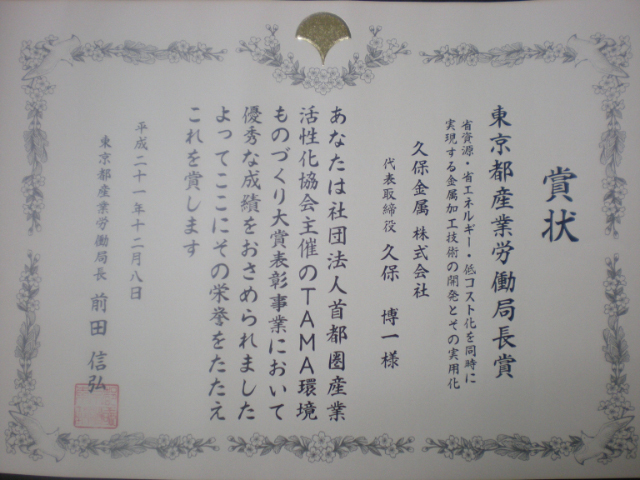 賞状
東京都産業労働局長賞
省資源・省エネルギー・低コスト化を同時に
実現する金属加工技術の開発とその実用化
久保金属 株式会社
代表取締役 久保 博一様
あなたは社団法人首都圏産業
活性化協会主催のTAMA環境
ものづくり大賞表彰事業において
優秀な成績をおさめられました
よってここにその栄誉をたたえ
これを賞します
平成二十一年十二月八日
東京都産業労働局長 前田 信弘